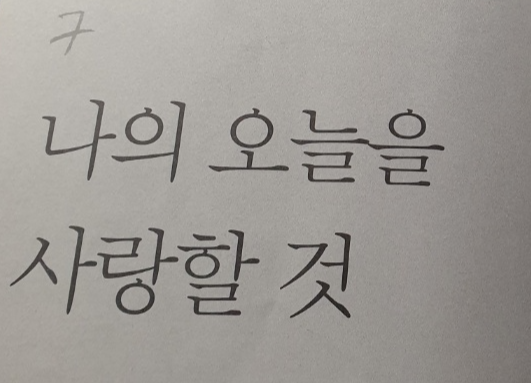 구
나의 오늘을
사랑할 것